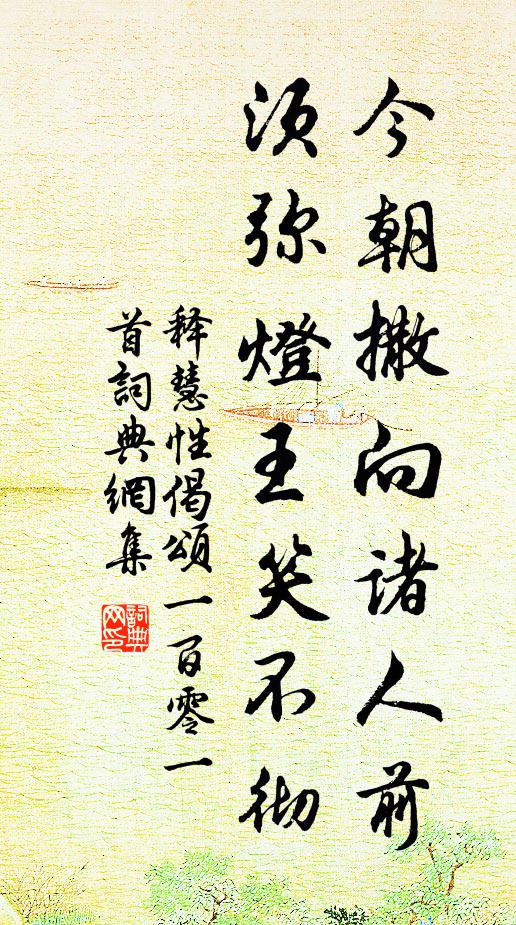 今朝撒向诸人前
须弥燈王笑不彻
释慧性偈颂一百零一
首詞典網集
詞典
网印